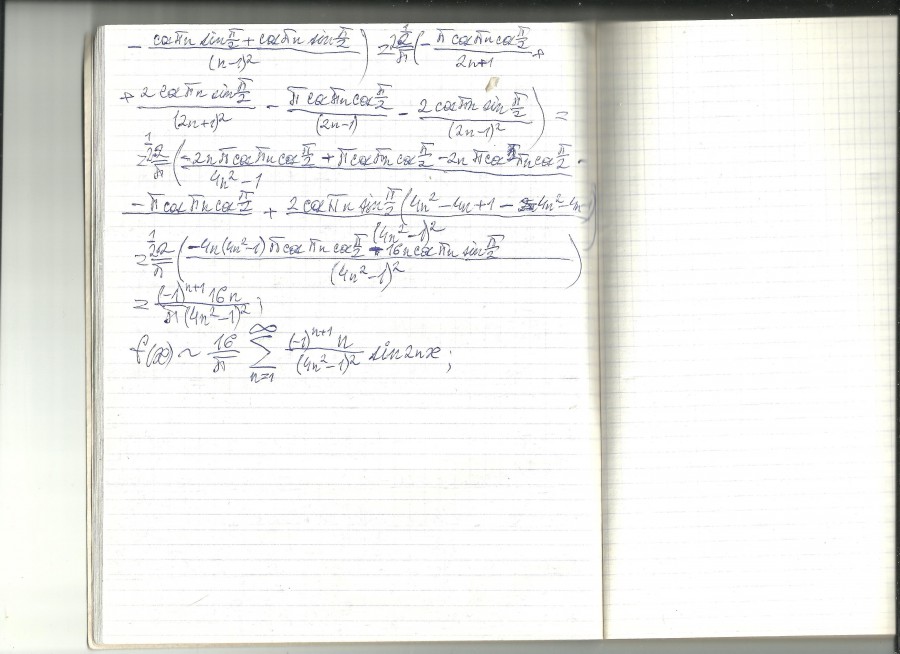 - (cos πn sin π/2 + cos πn sin π/2)/(n-1)²) = 1/2 2/π (- (π cos πn cos π/2)/(2n+1) +
+ (2 cos πn sin π/2)/(2n+1)² - (π cos πn cos π/2)/(2n-1) - (2 cos πn sin π/2)/(2n-1)²) =
= 1/2 2/π ((-2nπ cos πn cos π/2 + π cos πn cos π/2 - 2nπ cos πn cos π/2 -
- π cos πn cos π/2)/(4n²-1) + (2 cos πn sin π/2 (4n² - 4n + 1 - 4n² - 4n - 1))/(4n²-1)²
= 1/2 2/π ((-4n(4n²-1)π cos πn cos π/2 - 16n cos πn sin π/2)/(4n²-1)²)
= ((-1)ⁿ⁺¹ 16n)/(π(4n²-1)²);
f(x) ~ 16/π ∑ₙ₌₁^∞ ((-1)ⁿ⁺¹ n)/(4n²-1)² sin 2nx;